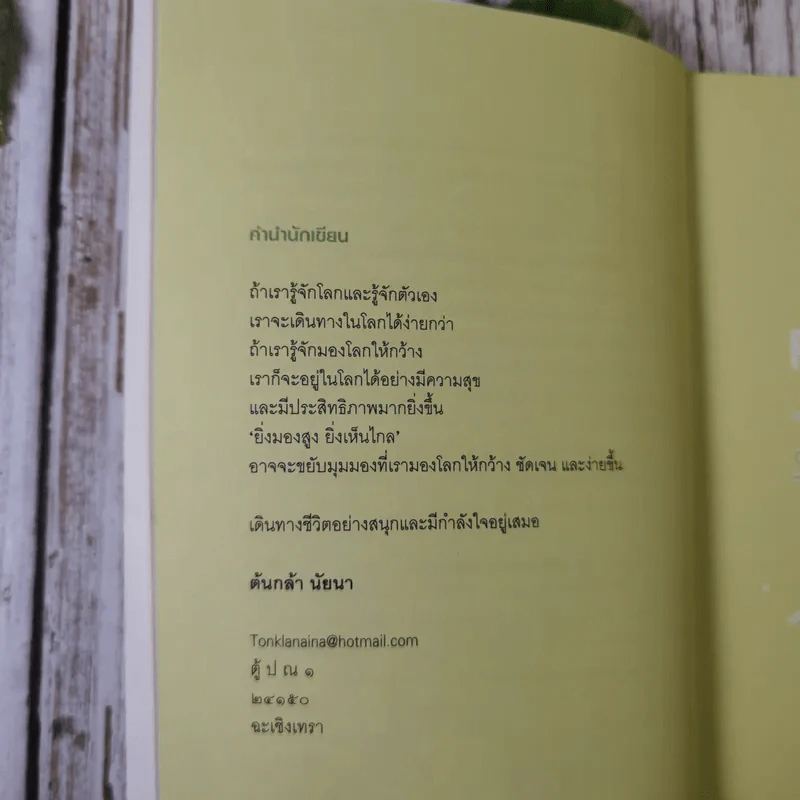 คำนำนักเขียน
ถ้าเรารู้จักโลกและรู้จักตัวเอง
เราจะเดินทางในโลกได้ง่ายกว่า
ถ้าเรารู้จักมองโลกให้กว้าง
เราก็จะอยู่ในโลกได้อย่างมีความสุข
และมีประสิทธิภาพมากยิ่งขึ้น
‘ยิ่งมองสูง ยิ่งเห็นไกล’
อาจจะขยับมุมมองที่เรามองโลกให้กว้าง ชัดเจน และง่ายขึ้น
เดินทางชีวิตอย่างสนุกและมีกำลังใจอยู่เสมอ
ต้นกล้า นัยนา
Tonklanaina@hotmail.com
ตู้ ป ณ ๑
๒๔๑๕๐
ฉะเชิงเทรา